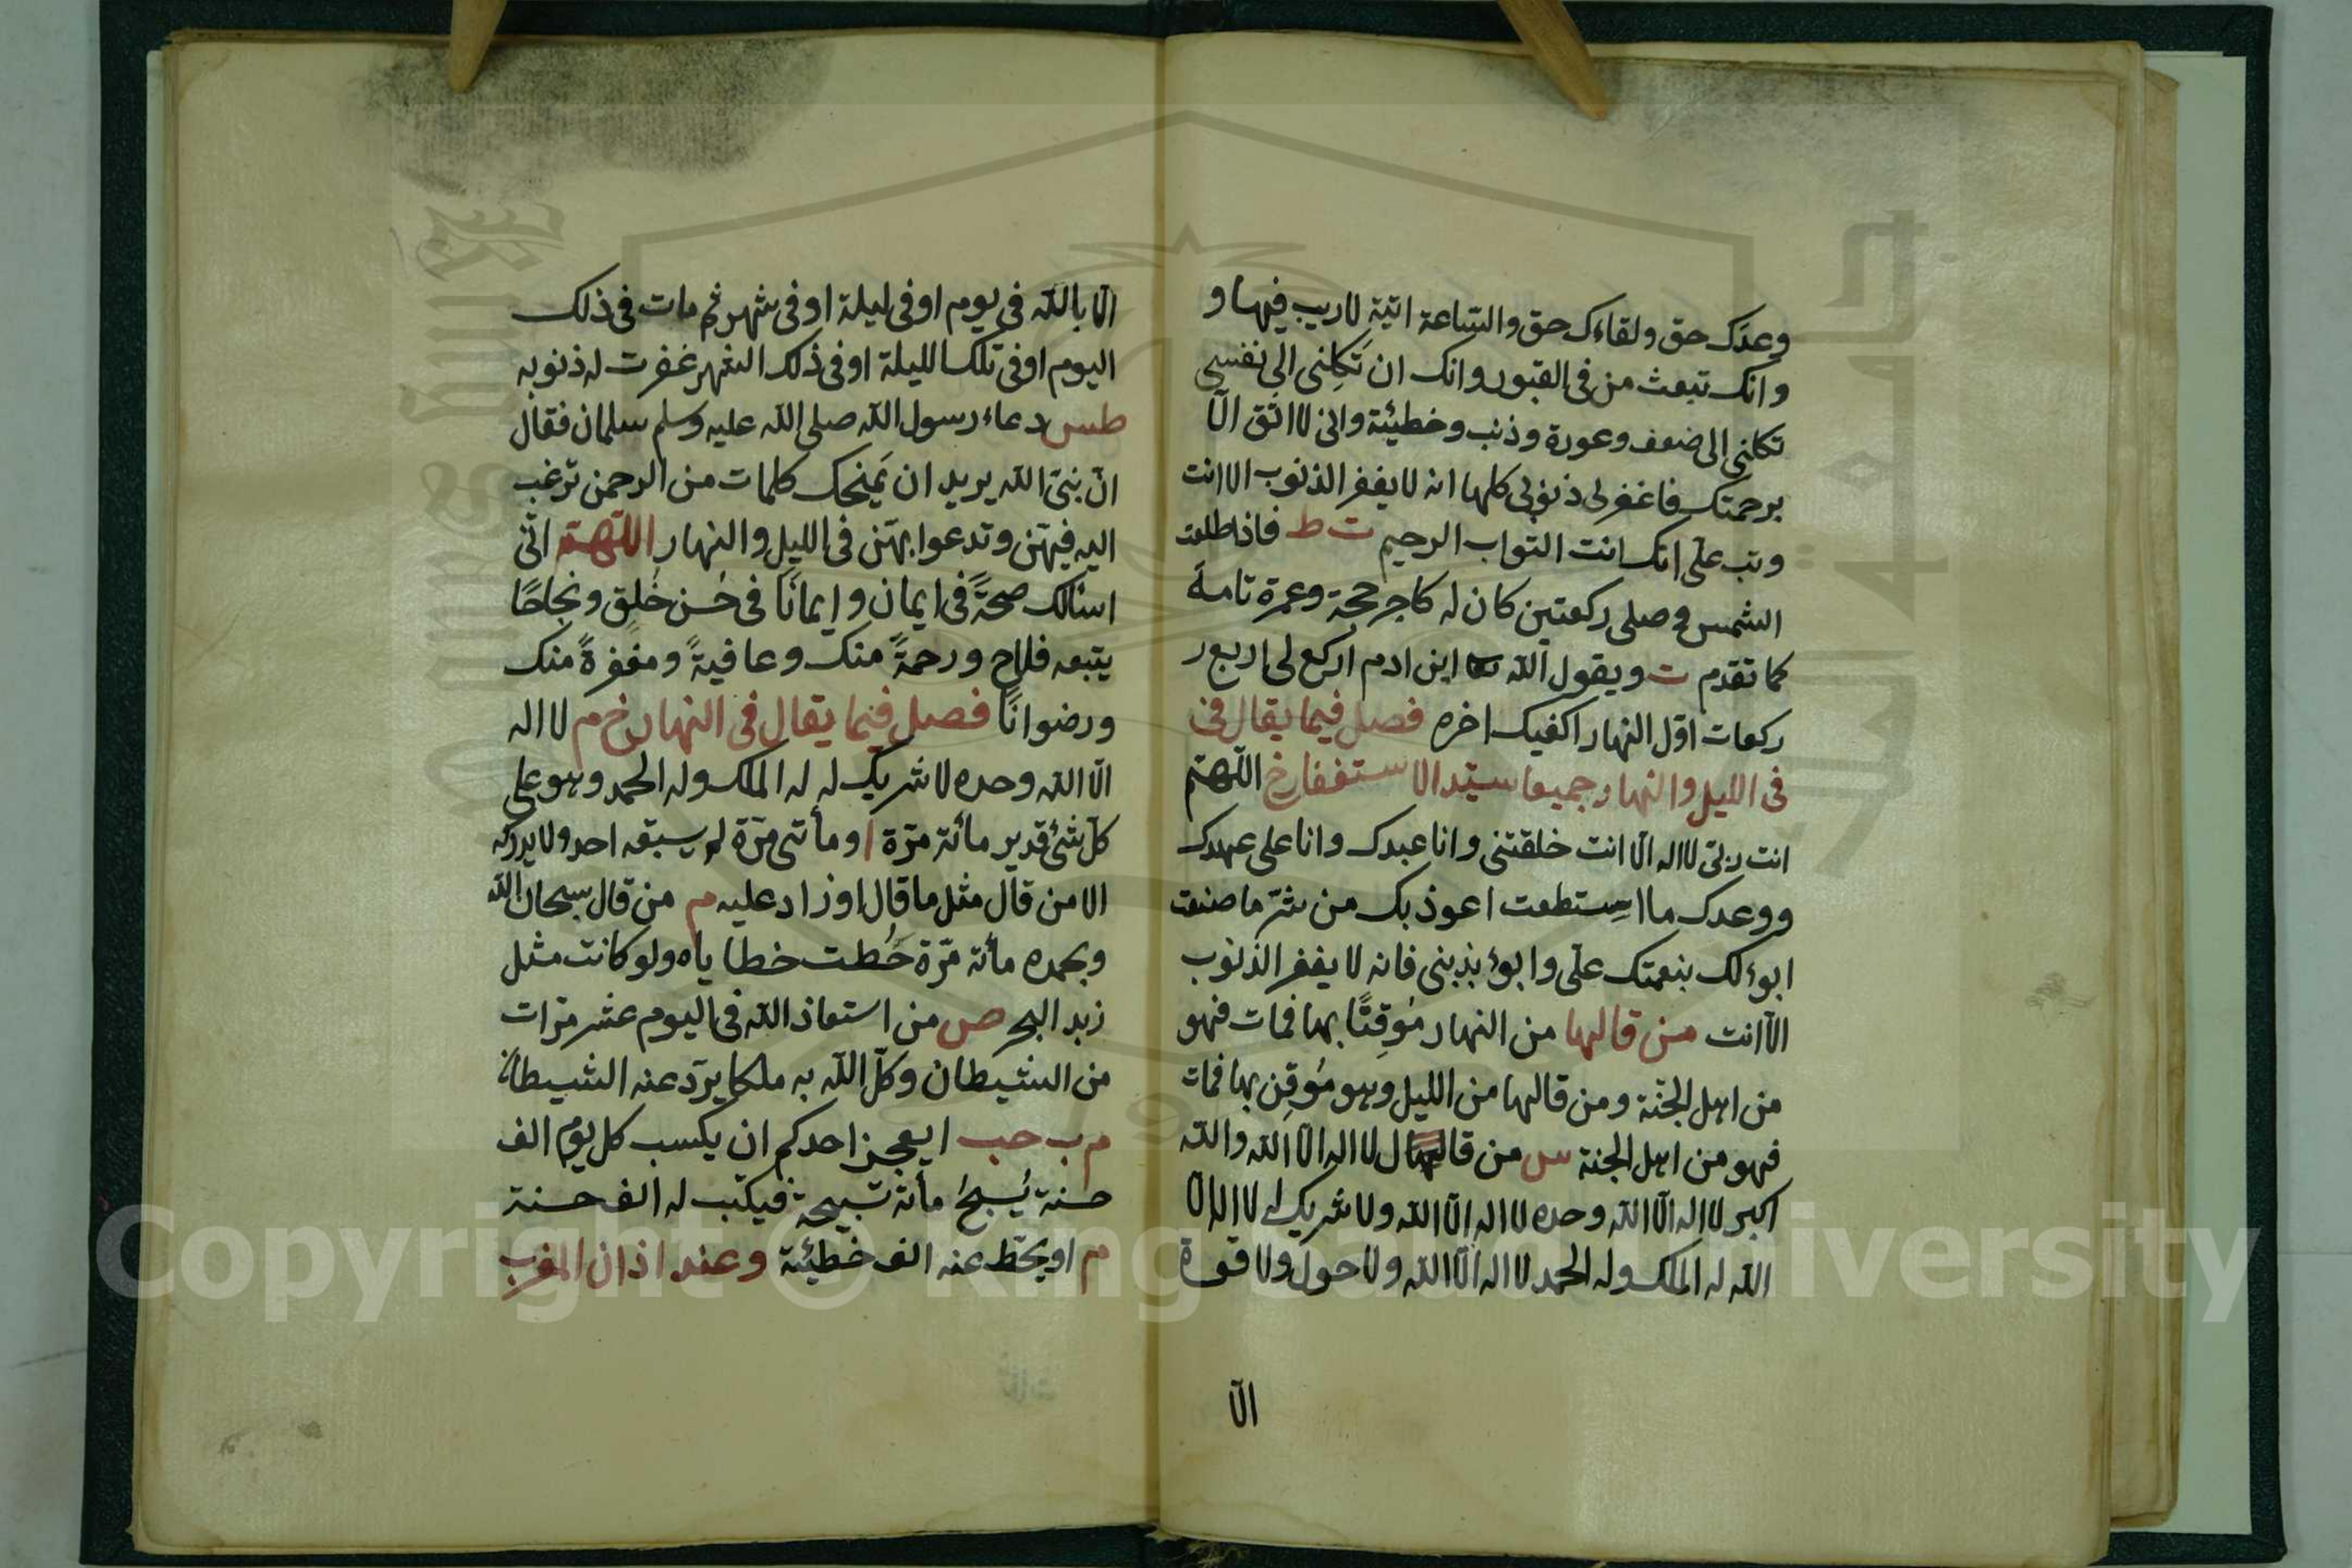 وعدك حق ولقاءك حق والساعة اتية لا ريب فيها و
وانك تبعث من في القبور وانك ان تَكِلني الى نفسي
تكلني الى ضعف وعورة وذنب وخطيئة واني لا اثق الّا
برحمتك فاغفر لي ذنوبي كلها انه لا يغفر الذنوب الا انت
وتب علّى انك انت التواب الرحيم ت ط فاذا طلعت
الشمس وصلى ركعتين كان له كاجر حجة وعمرة تامة
كما تقدم ت ويقول الله ابن ادم اركع لي اربع ر
ركعات اوّل النهار اكفيك اخره فصل فيما يقال في
في الليل والنهار جميعا سيّد الاستغفار خ اللّهمّ
انت ربّي لا اله الّا انت خلقتني وانا عبدك وانا على عهدك
ووعدك ما استطعت اعوذ بك من شرّ ما صنعت
ابوءُ لك بنعمتك علّى وابوءُ بذنبي فانه لا يغفر الذنوب
الّا انت من قالها من النهار مُوقِنًا بها فمات فهو
من اهل الجنّة ومن قالها من الليل وهو مُوقِن بها فمات
فهو من اهل الجنة س من قال لا اله الّا الله والله
اكبر لا اله الّا الله وحده لا اله الّا الله ولا شريك له لا اله الّا
الله له الملك وله الحمد لا اله الّا الله ولا حول ولا قوة
الّا
الّا بالله في يوم او في ليلة او في شهر ثم مات في ذلك
اليوم او في تلك الليلة او في ذلك الشهر غفرت له ذنوبه
طس دعاء رسول الله صلى الله عليه وسلم سلمان فقال
انّ نبيّ الله يريد ان يَمنحك كلمات من الرحمن ترغب
اليه فيهنّ وتدعوا بهنّ في الليل والنهار اللّهمّ انّي
اسئالك صحةً في ايمان وايمانًا في حُسن خُلق ونجاحًا
يتبعه فلاح ورحمةً منك وعافيةً ومغفرةً منك
ورضوانًا فصل فيما يقال في النهار خ م لا اله
الّا الله وحده لا شريك له له الملك وله الحمد وهو على
كلّ شيء قدير مائة مرّة ا ومأتي مرّة لم يسبقه احد ولا يدركه
الا من قال مثل ما قال او زاد عليه م من قال سبحان الله
وبحمده مائة مرّة حُطت خطاياه ولو كانت مثل
زبد البحر ص من استعاذ الله في اليوم عشر مرّات
من الشيطان وكّل الله به ملكا يردّ عنه الشيطان
م ب حب ايعجز احدكم ان يكسب كل يوم الف
حسنة يُسبحُ مأة تسبيحة فيكتب له الف حسنة
م او يحّط عنه الف خطيئة وعند اذان المغرب
Copyright © King Saud University